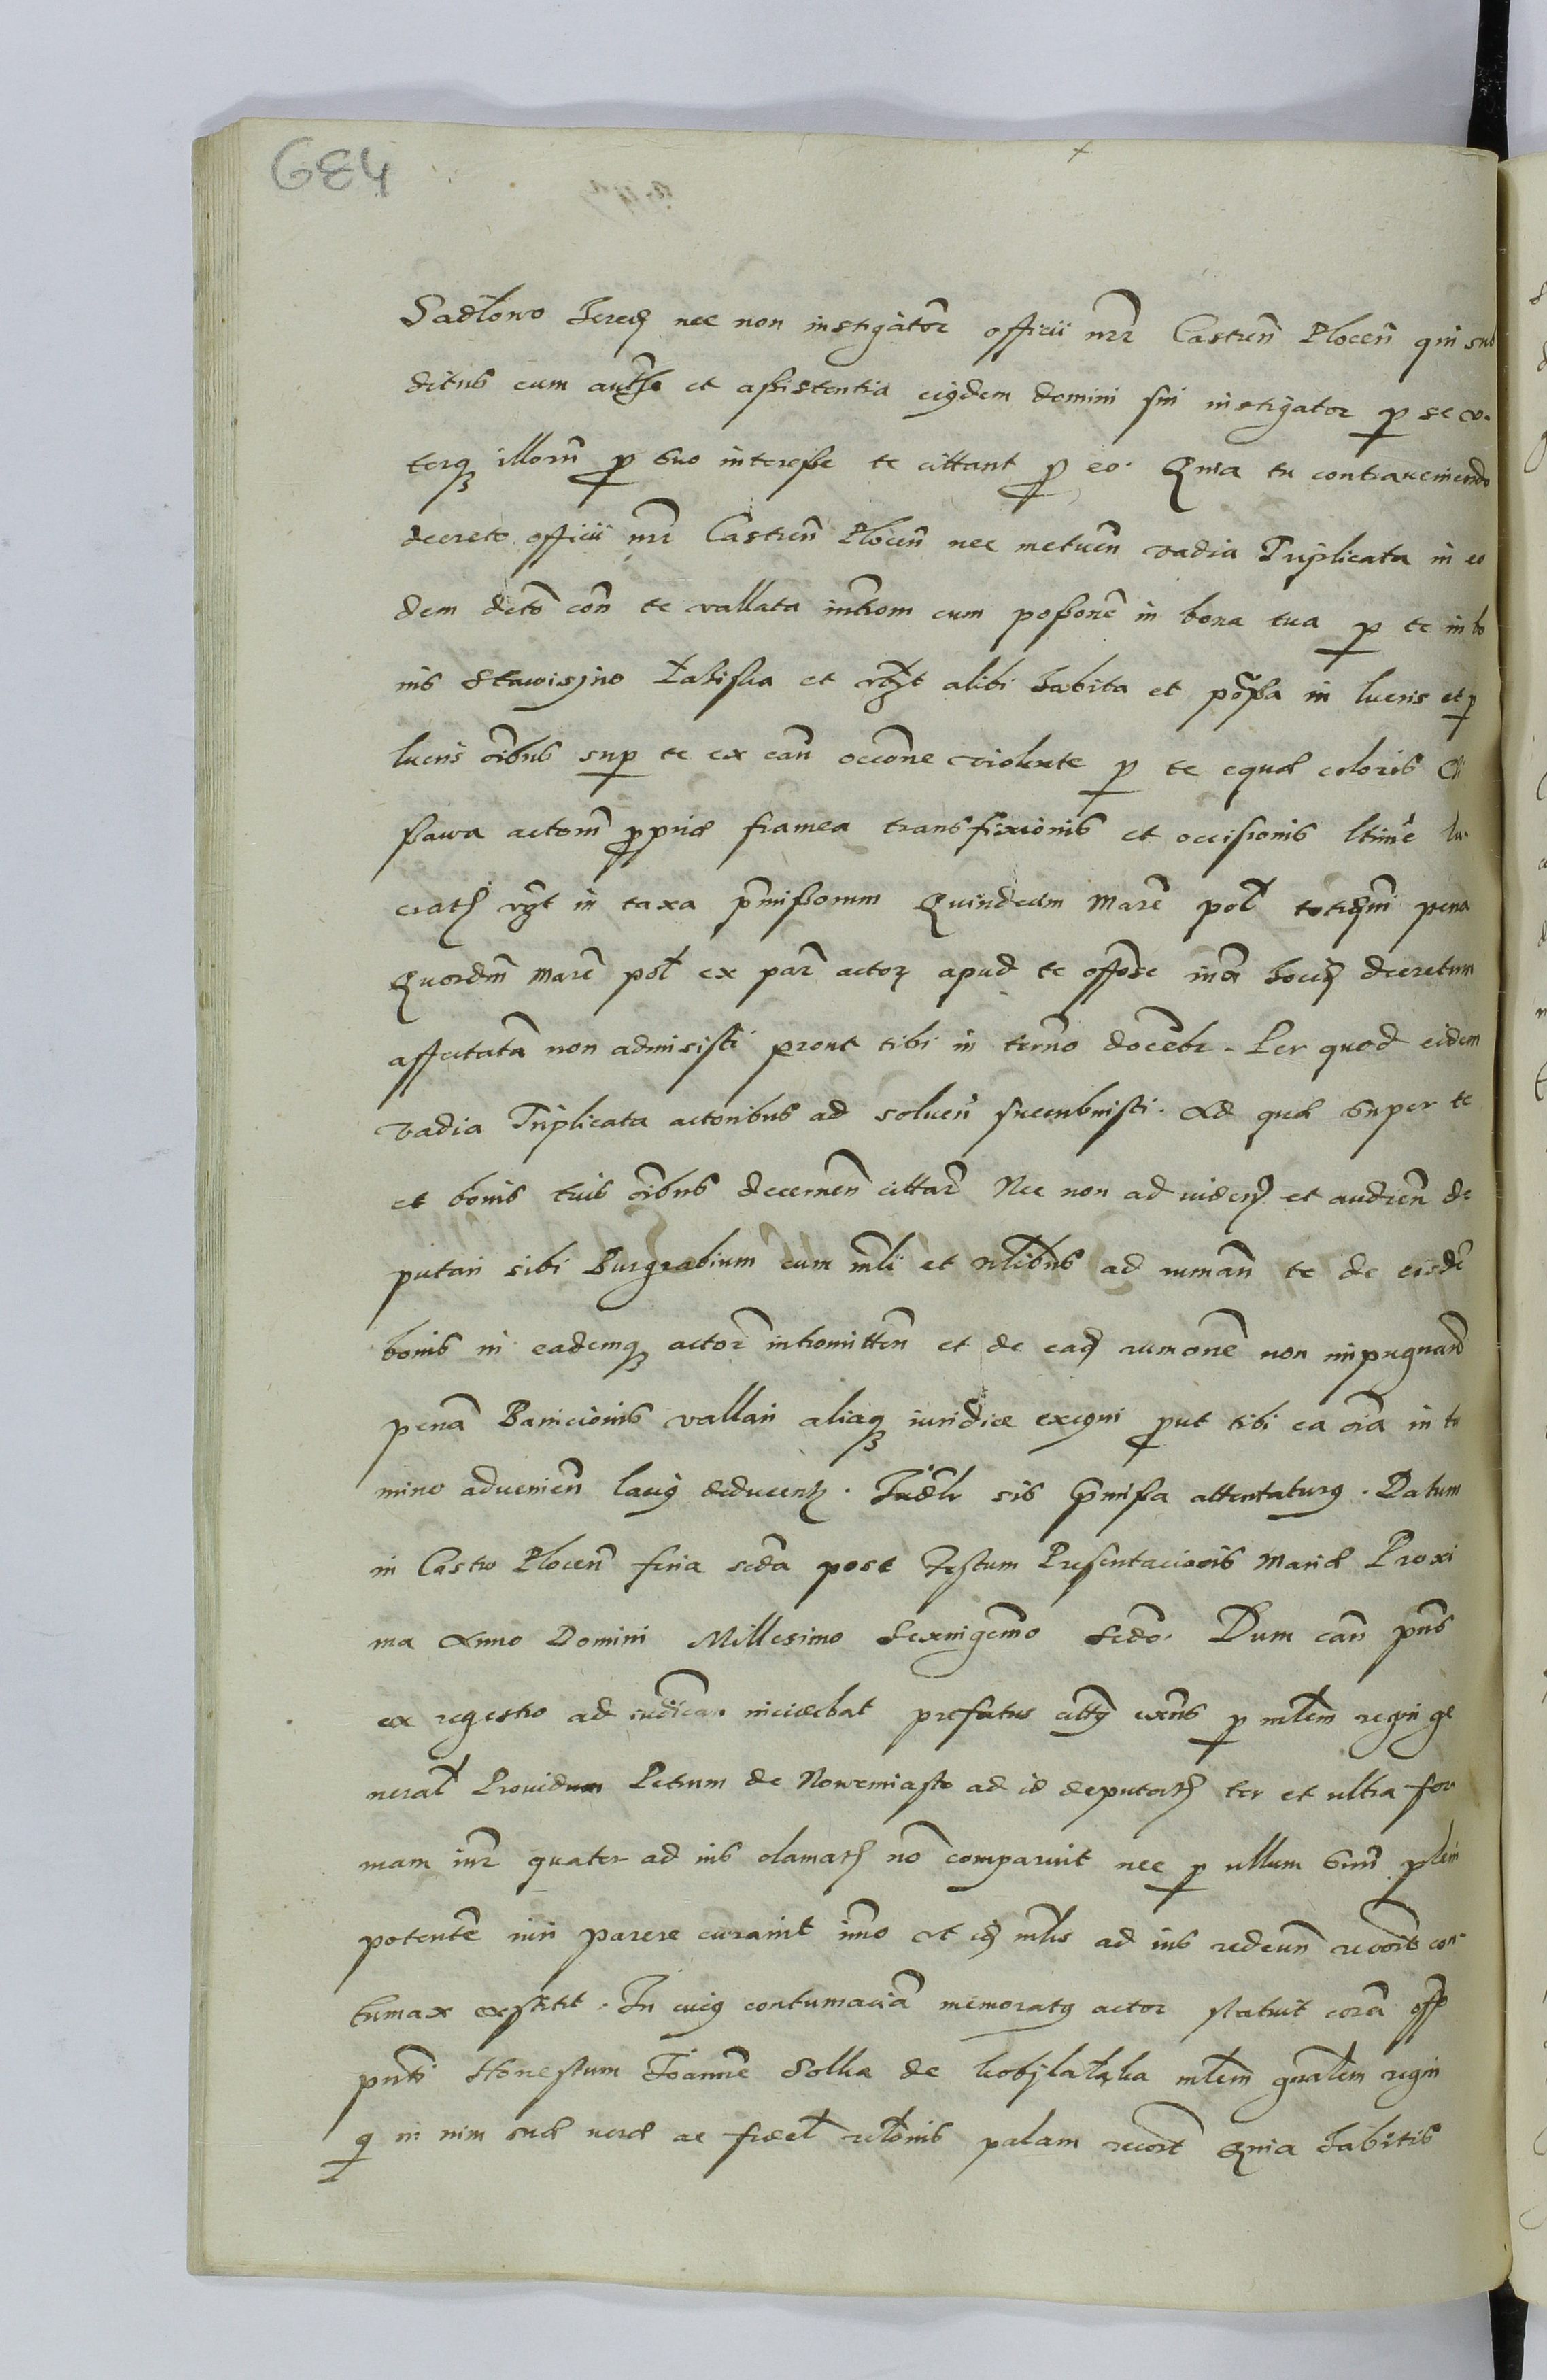 684
Sadłowo hered nec non instigator officii nrr Castren Plocen qui sub
ditus cum auth et assistentia eigdem domini sui instigator p se v
terq illorũ p suo interesse te cittant p eo. Quia tu contraueniendo
decreto officii nrr Castren Plocen nec metuen vadia Triplicata in eo
dem deto con te vallata introm cum possone in bona tua p te in bo
nis Stawiszyno Łaziska et vbt alibi habita et possa in lucris et p
lucris oibus sup te ex cau occone violente p te equae coloris
ssawa actorum ppriae framea transfixionis et occisionis ltime lu
crat vgt in taxa pmissorum Quindecim Marc pol totiqm pena
Quordm Marc pol ex par actor apud te offose ima hociq decretum
affectata non admisisti prout tibi in termo docebr. Per quod eidem
vadia Triplicata actoribus ad soluen succubuisti. Ad quae super te
et bonis tuis oibus decernen cittar Nec non ad viden et audien de
putari sibi Burgrabium cum mli et nlibus ad ruman te de eisde
bonis in eademq actor intromitten et de eaq rumone non impugnand
pena Banicionis vallari aliaq iuridice exequi put tibi ea oia in ter
mino aduenien laciq deducent. Iudlr sis pmissa attentaturq. Datum
in Castro Plocen feria secda post Festum Presentacionis Mariae Proxi
ma Anno Domini Millesimo Sexnigemo Secdo. Dum cau pns
ex regestro ad iudican incidebat prefatus citty exns p mlem regni ge
neral Prouidum Petrum de Nowemiasto ad id deputat ter et ultra for
mam iur quater ad ius clamat no comparuit nec p ullum suu pleni
potente iuri parere curauit imo vt iq mlis ad ius redeun recort con
tumax exstitit. In cuiq contumacia memoratq actor statuit cora off
pnti Honestum Joanne Solka de Kobylałąka mlem gnalem regni
q in vim suae verae ac fidel relonis palam recort Quia habitis